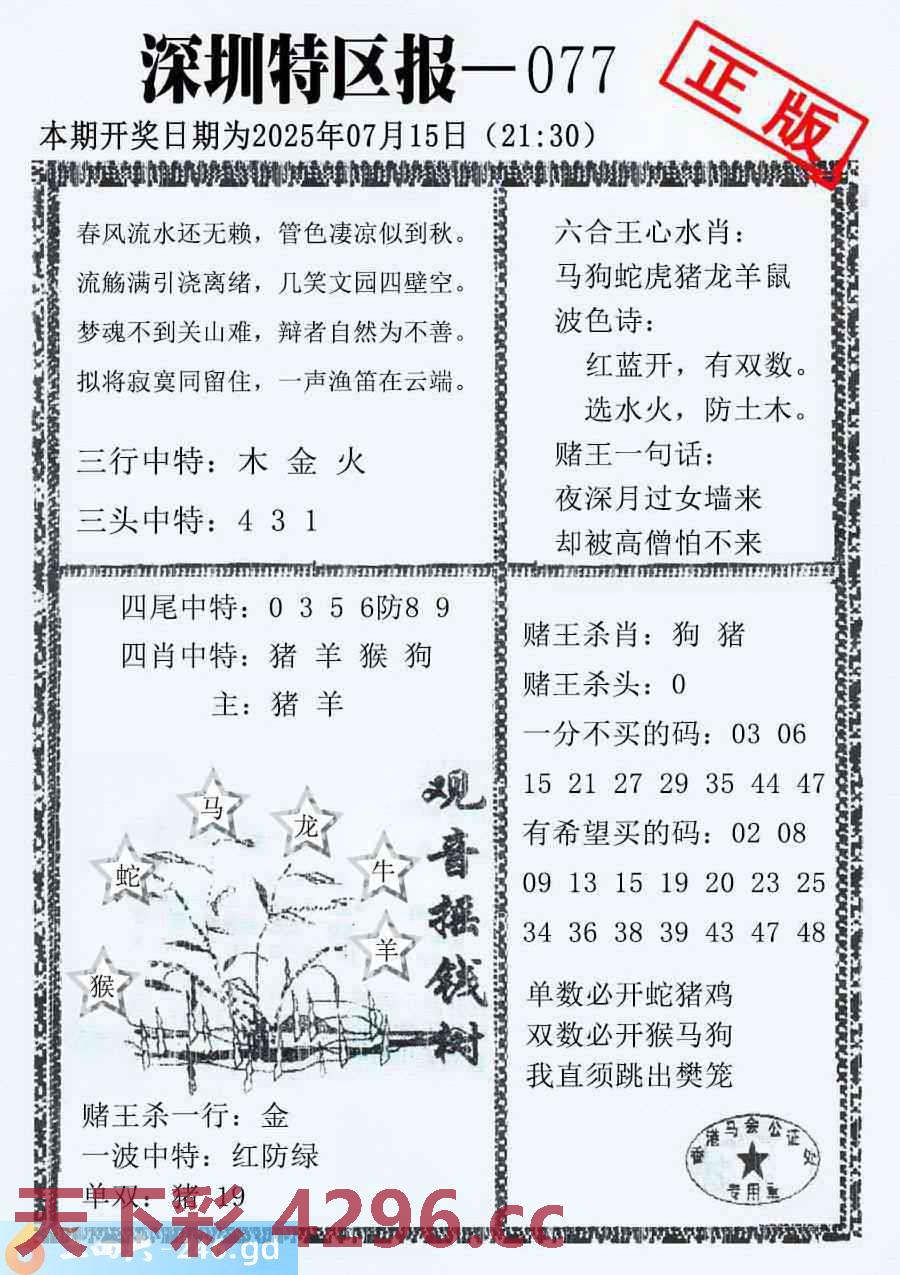 深圳特区报—077
正版
本期开奖日期为2025年07月15日（21:30）
春风流水还无赖，管色凄凉似到秋。
流觞满引浇离绪，几笑文园四壁空。
梦魂不到关山难，辩者自然为不善。
拟将寂寞同留住，一声渔笛在云端。
三行中特：木 金 火
三头中特：4 3 1
六合王心水肖：
马狗蛇虎猪龙羊鼠
波色诗：
红蓝开，有双数。
选水火，防土木。
赌王一句话：
夜深月过女墙来
却被高僧怕不来
四尾中特：0 3 5 6防8 9
四肖中特：猪 羊 猴 狗
主：猪 羊
马
龙
蛇
牛
羊
猴
观音摇钱树
赌王杀一行：金
一波中特：红防绿
单双：猪 19
赌王杀肖：狗 猪
赌王杀头：0
一分不买的码：03 06
15 21 27 29 35 44 47
有希望买的码：02 08
09 13 15 19 20 23 25
34 36 38 39 43 47 48
单数必开蛇猪鸡
双数必开猴马狗
我直须跳出樊笼
香港马会公证处
专用章
天下彩 4296.cc